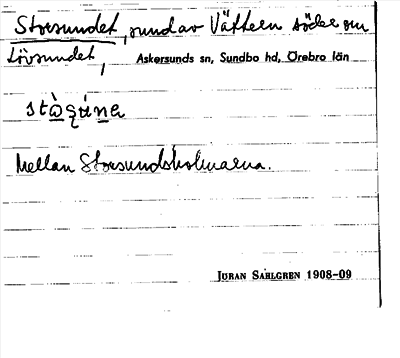 Storsundet, sund av Vättern söder om
Lövsundet, Askersunds sn, Sundbo hd, Örebro län
Mellan Storsundsholmarna.
JÖRAN SAHLGREN 1908-09